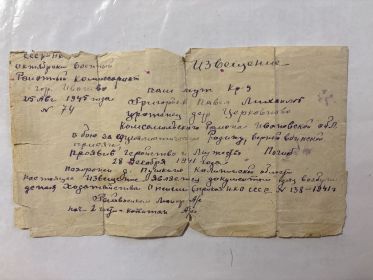 СССР НКО
Октябрский военный Извещение
Районный Комиссариат
гор. Иваново Ваш муж Кр-ц
25 Авг 1945 года Григорьев Павел
N 74 Уроженец дер Церковново
Комсомольского Района Ивановской обл.
в бою за социалистическую Родину, верный воинской
присяге,
Проявив геройство и мужество Погиб
28 декабря 1941 года
похоронен д. Калининской области
настоящее Извещение является документом для возбуж
дения ходатайства о пенсии (приказ НКО СССР N 138-1941г
Райвоенком Майор
нач. 2 части капитан